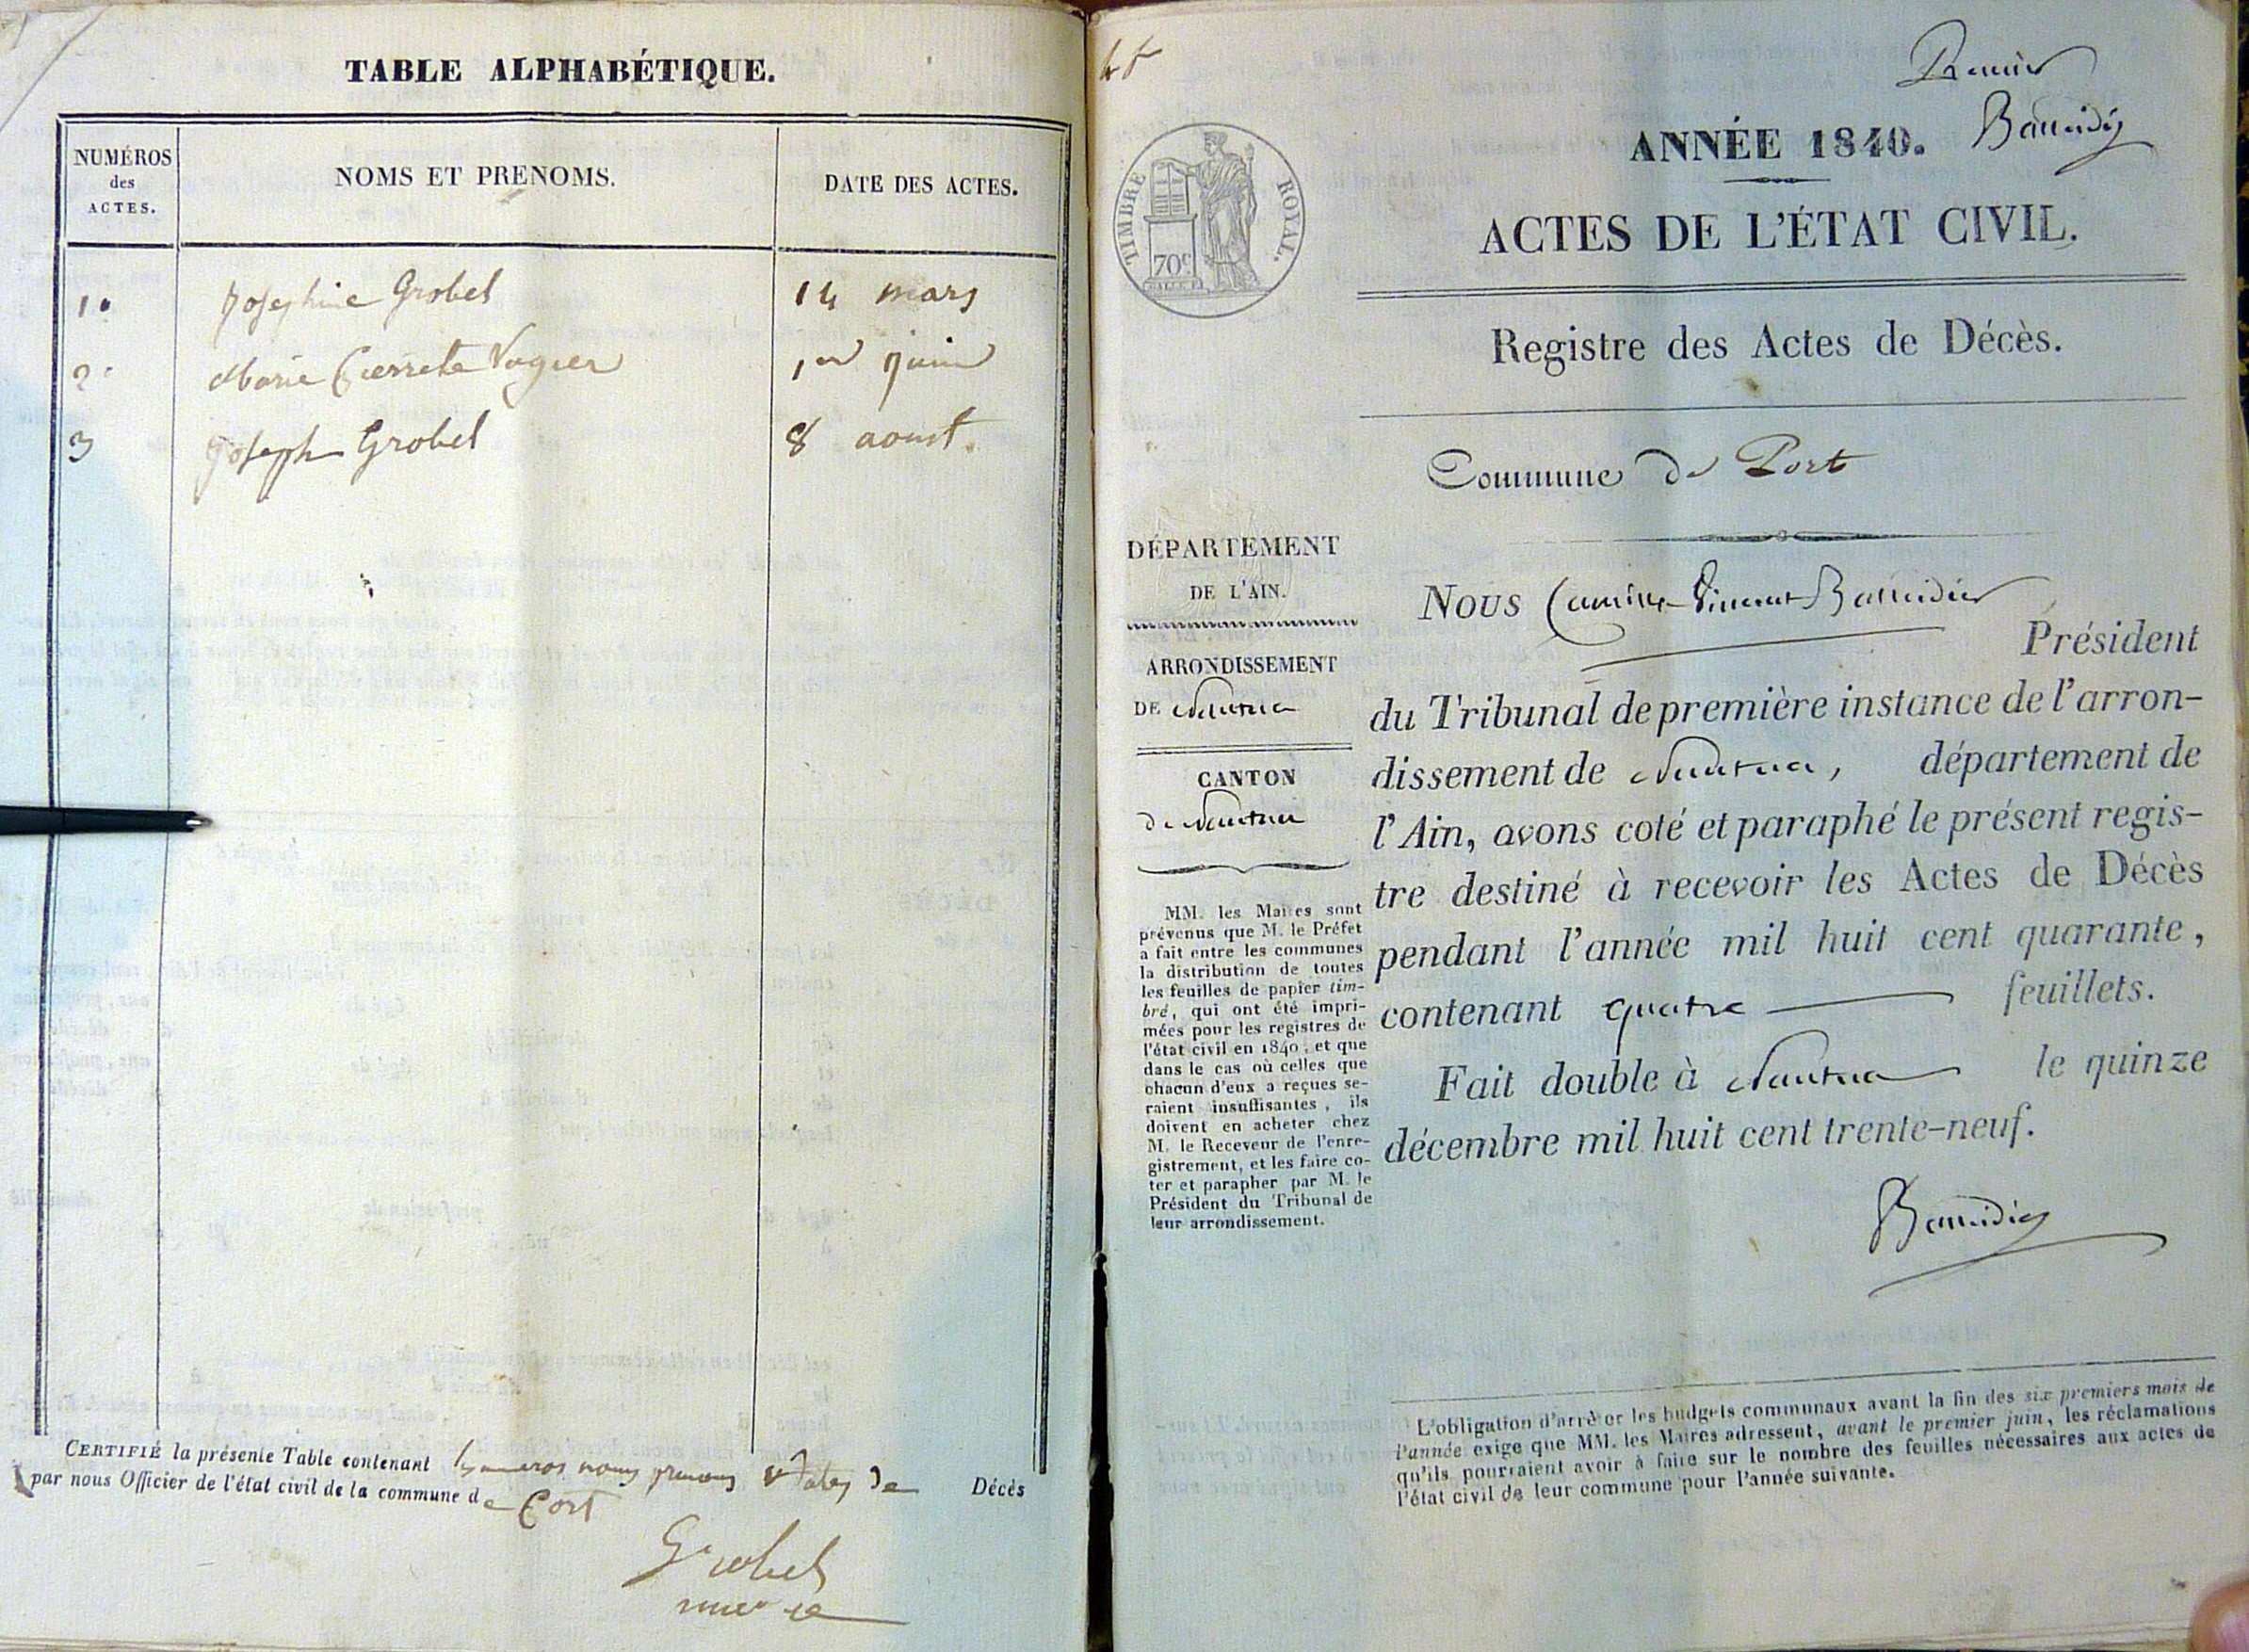 TABLE ALPHABÉTIQUE.
NUMÉROS
des
ACTES.
NOMS ET PRENOMS.
DATE DES ACTES.
1. Josephine Grobel 14 mars
2. Marie Pierrete Vagier 1er juin
3 Joseph Grobel 8 aoust.
CERTIFIÉ la présente Table contenant les numeros noms prenoms et dates de Décès
par nous Officier de l'état civil de la commune de Port
Grobel
maire
Premier
ANNÉE 1840.
TIMBRE ROYAL.
70c
ACTES DE L'ÉTAT CIVIL.
Registre des Actes de Décès.
Commune de Port
DÉPARTEMENT
DE L'AIN.
ARRONDISSEMENT
DE Nantua
CANTON
de Nantua
MM. les Maires sont
prévenus que M. le Préfet
a fait entre les communes
la distribution de toutes
les feuilles de papier tim-
bré, qui ont été impri-
mées pour les registres de
l'état civil en 1840, et que
dans le cas où celles que
chacun d'eux a reçues se-
raient insuffisantes, ils
doivent en acheter chez
M. le Receveur de l'enre-
gistrement, et les faire co-
ter et parapher par M. le
Président du Tribunal de
leur arrondissement.
Nous Camille Vincent
Président
du Tribunal de première instance de l'arron-
dissement de Nantua, département de
l'Ain, avons coté et paraphé le présent regis-
tre destiné à recevoir les Actes de Décès
pendant l'année mil huit cent quarante,
contenant quatre feuillets.
Fait double à Nantua le quinze
décembre mil huit cent trente-neuf.
L'obligation d'arrêter les budgets communaux avant la fin des six premiers mois de
l'année exige que MM. les Maires adressent, avant le premier juin, les réclamations
qu'ils pourraient avoir à faire sur le nombre des feuilles nécessaires aux actes de
l'état civil de leur commune pour l'année suivante.